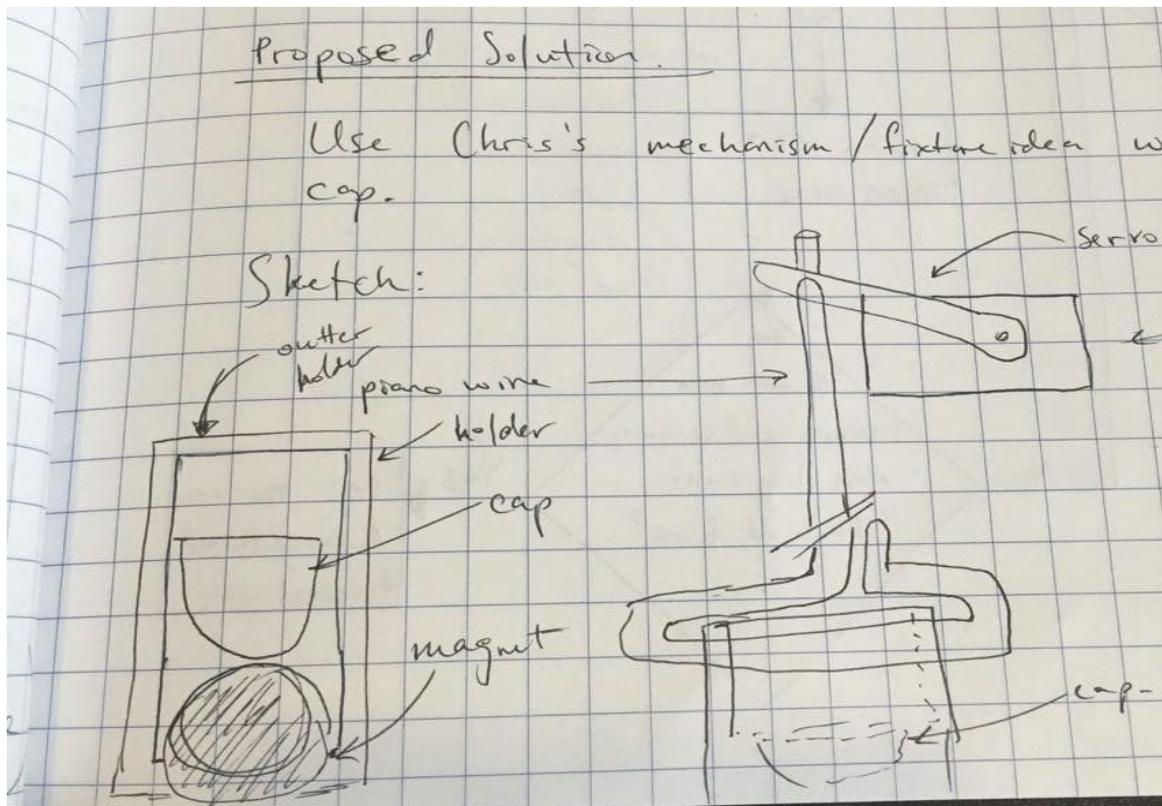 Proposed Solution.
Use Chris's mechanism / fixture idea w
cap.
Sketch:
servo
outter
holder
piano wire
holder
cap
magnet
cap-